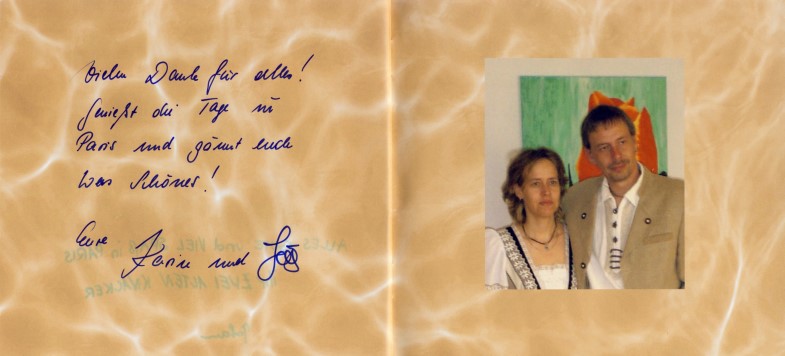 Vielen Dank für alles!
Genießt die Tage in
Paris und gönnt euch
was Schönes!
Eure
Karin und
ALLES und VIEL in PARIS
ZWEI ALTEN KNACKER